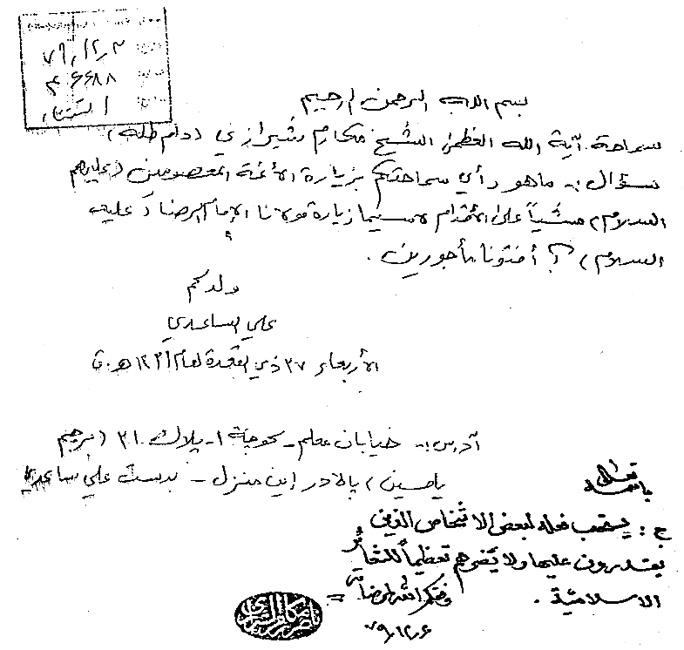 ٧٩/١٢/٣
٤٠٦٦٨٨
بسم الله الرحمن الرحيم
سماحة آية الله العظمى الشيخ مكارم شيرازي (دام ظله)
سؤال :- ما هو رأي سماحتكم بزيارة الأئمة المعصومين (عليهم
السلام) مشياً على الأقدام لا سيما زيارة مولانا الإمام الرضا (عليه
السلام) ؟ أفتونا مأجورين .
ولدكم
علي الساعدي
الأربعاء ٢٧ ذي القعدة لعام ١٤٢١ هـ.ق
آدرس :- خيابان معلم - كوچة ١ - پلاك ٢١ (مترجم
ياسين) بالا در اين منزل - بدست علي ساعدي
باسمه تعالى
ج : يستحب فعله لبعض الاشخاص الذين
يقتدرون عليها ولا يضرهم تعظيماً للشعائر
الاسلامية . وفقكم الله لمرضاته =
ناصر مكارم الشيرازي
٧٩/١٢/٦